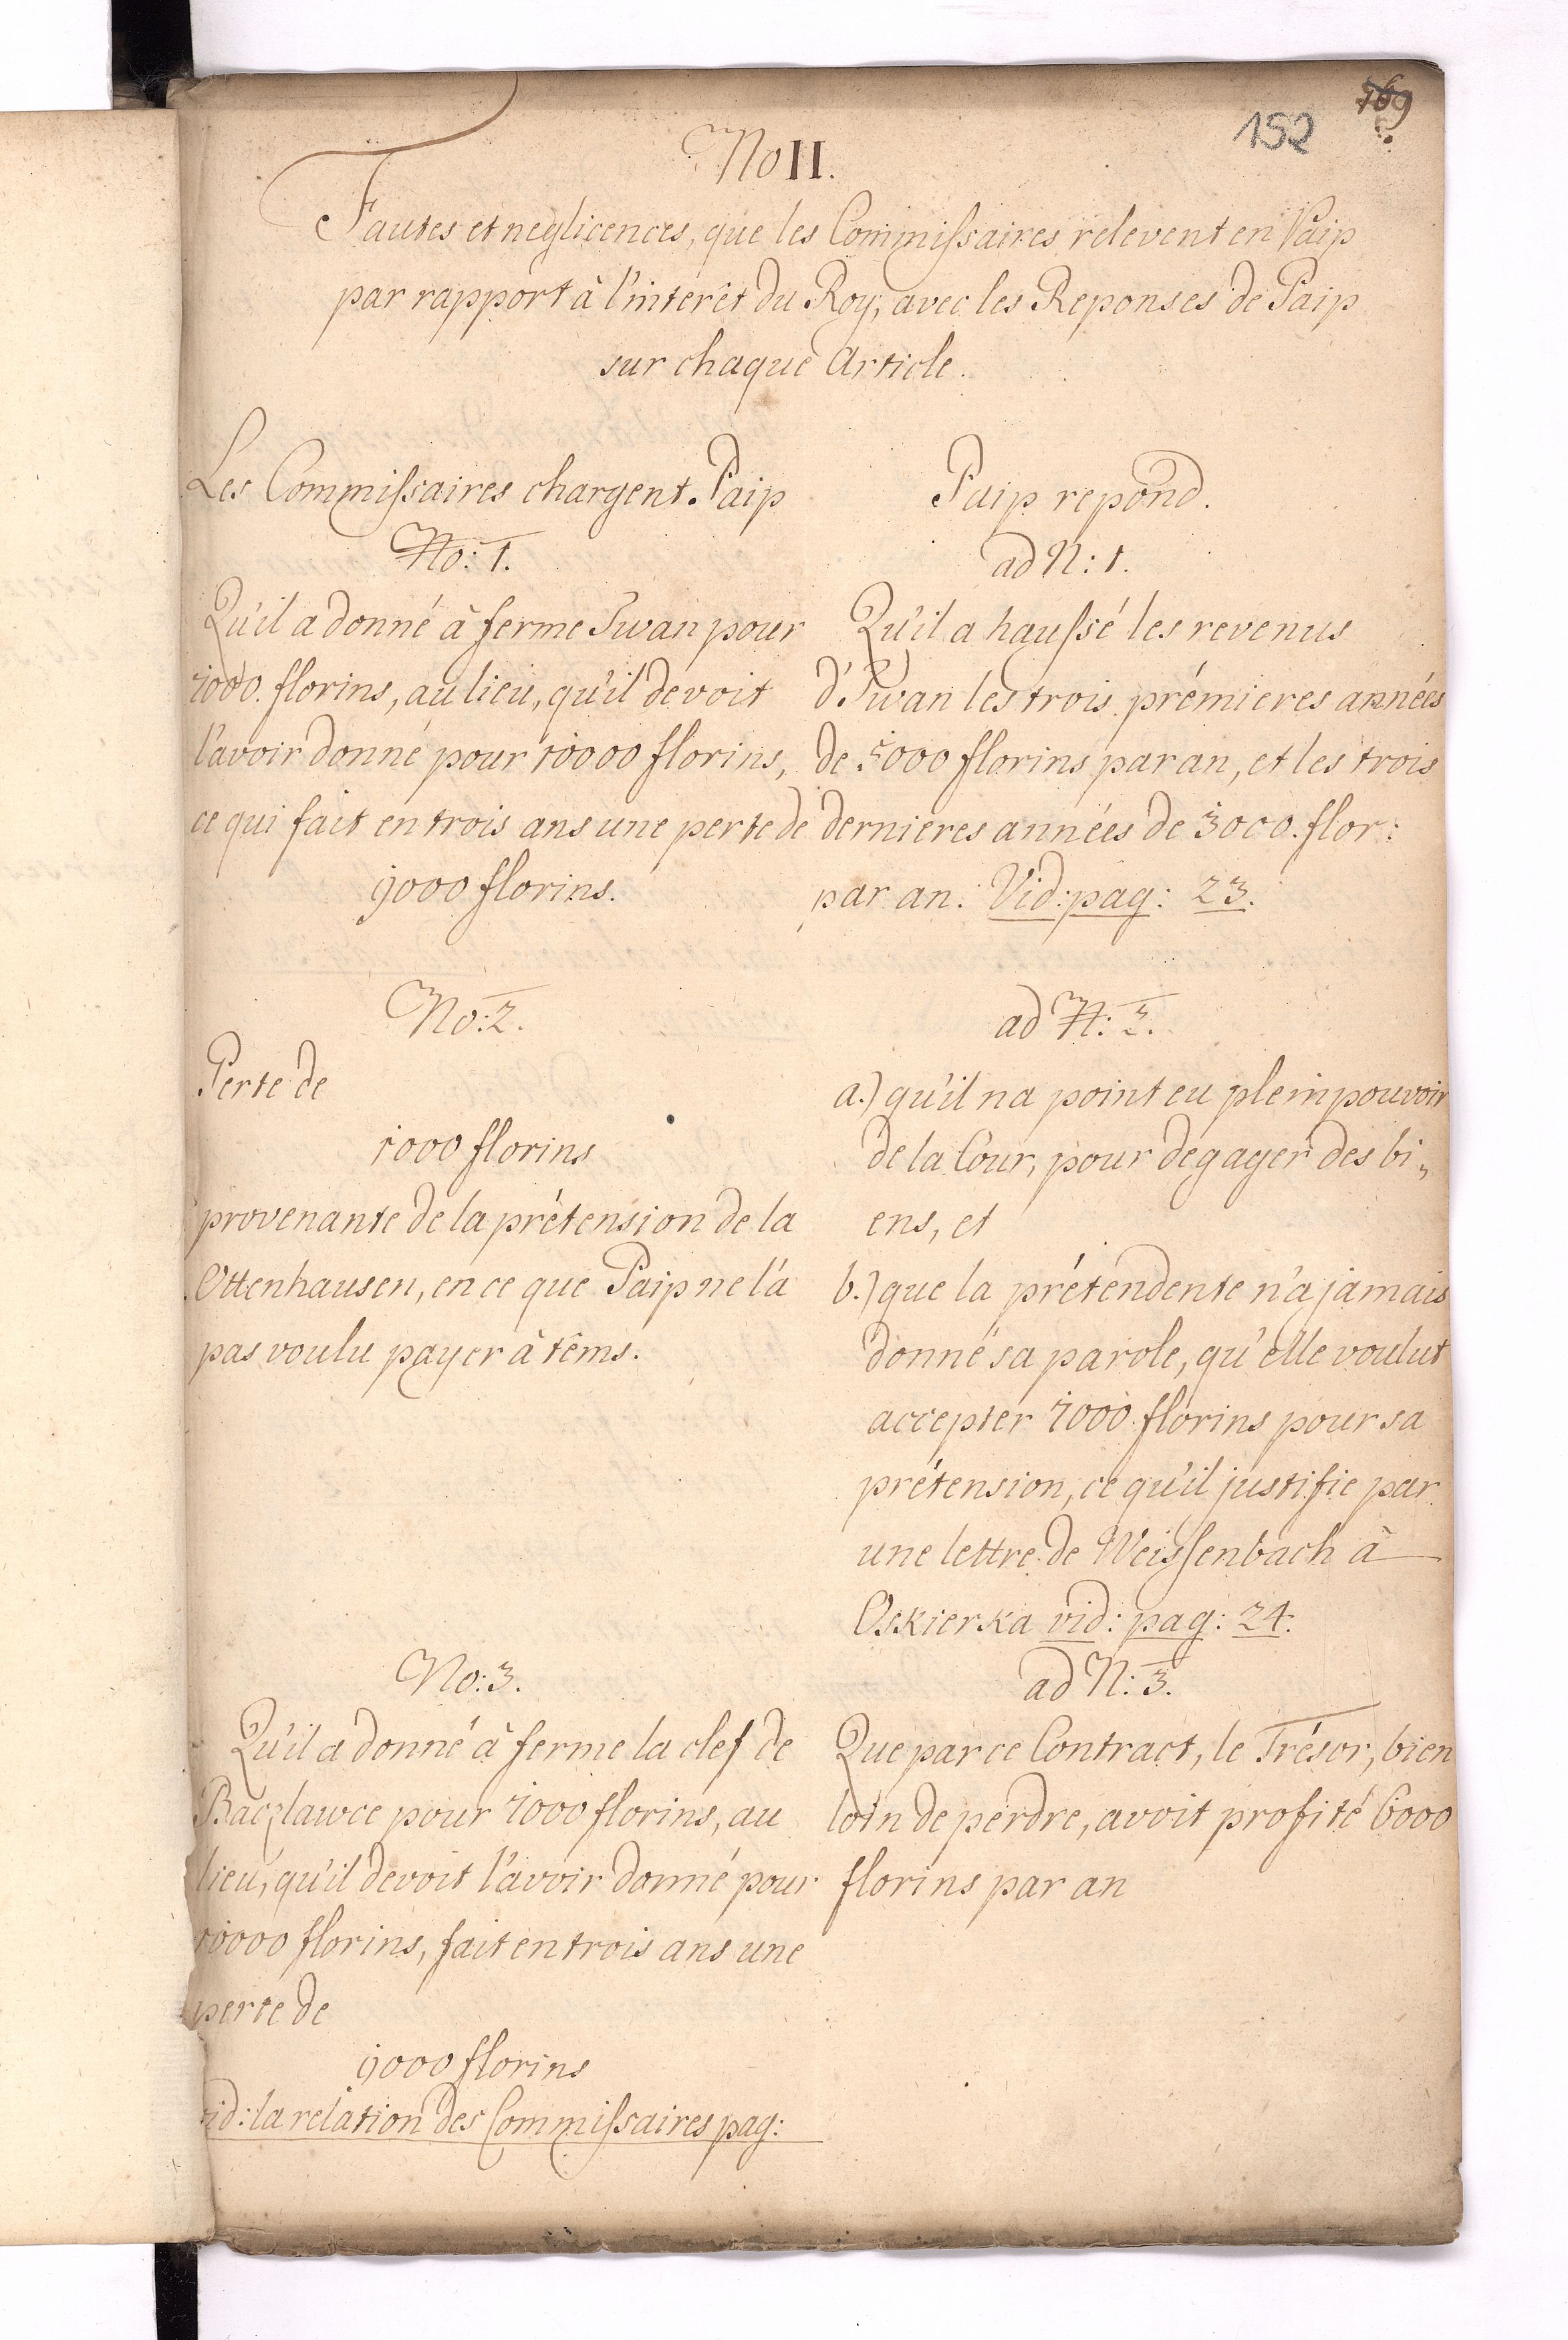 169
152
No II.
Fautes et neglicences, que les Commissaires relevent en Paip
par rapport à l'interêt du Roy, avec les Reponses de Paip
sur chaque Article.
Les Commissaires chargent. Paip
No: 1.
Qu'il a donné à ferme Iwan pour
7000. florins, au lieu, qu'il devoit
l'avoir donné pour 10000 florins,
ce qui fait en trois ans une perte de
9000 florins.
No: 2.
Perte de
1000 florins
provenante de la prétension de la
Ottenhausen, en ce que Paip ne l'a
pas voulu payer à têms.
No: 3.
Qu'il a donné à ferme la clef de
Baczlawce pour 7000 florins, au
lieu, qu'il devoit l'avoir donné pour
10000 florins, fait en trois ans une
perte de
9000 florins
vid: la relation des Commissaires pag:
Paip repond.
ad N: 1.
Qu'il a haussé les revenus
d'Iwan les trois prémieres années
de 5000 florins par an, et les trois
dernieres années de 3000. flor:
par an. Vid: pag: 23.
ad N: 2.
a.) qu'il na point eu plein pouvoir
de la Cour, pour degager des bi„
ens, et
b.) que la prétendente n'a jamais
donné sa parole, qu'elle voulut
accepter 7000 florins pour sa
prétension, ce qu'il justifie par
une lettre de Weissenbach à
Oskierka vid: pag: 24.
ad N: 3.
Que par ce Contract, le Trésor, bien
loin de perdre, avoit profité 6000
florins par an